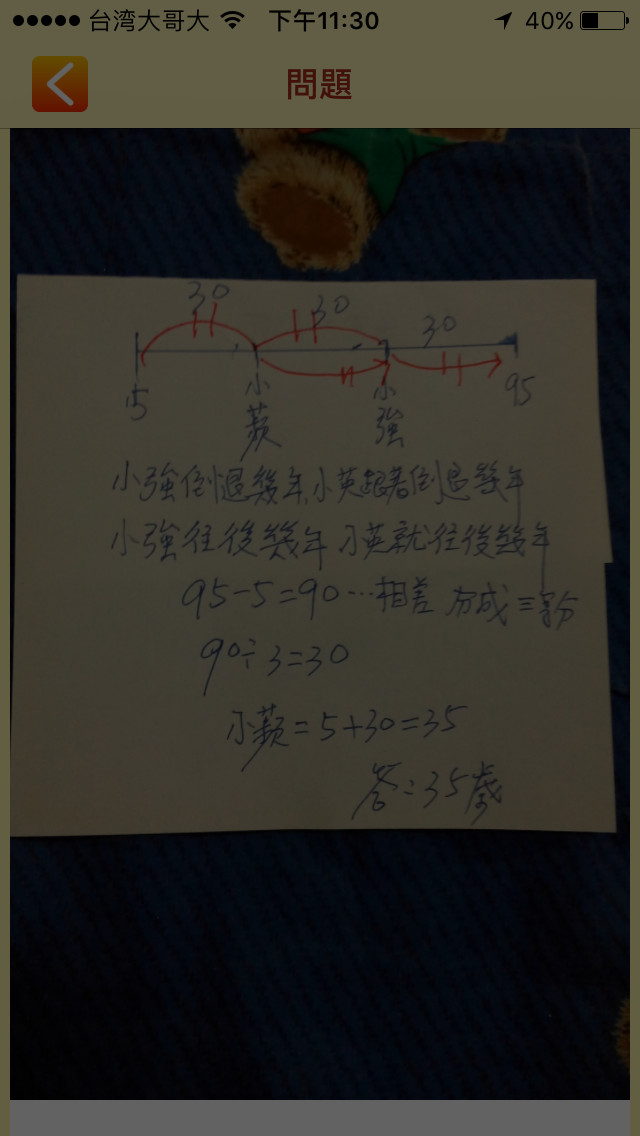 台湾大哥大 下午11:30 40%
問題
30 30 30
5 小蘋 小強 95
小強倒退幾年,小英跟著倒退幾年
小強往後幾年 小英就往後幾年
95-5=90…相差 分成三等分
90÷3=30
小蘋=5+30=35
答:35歲